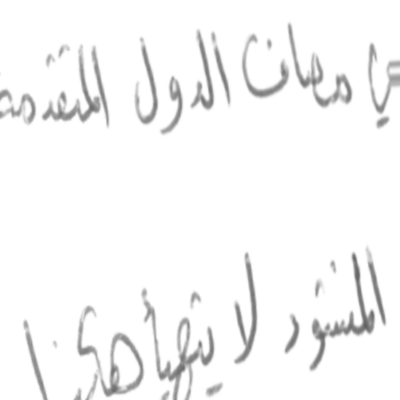 في مصاف الدول المتقدمة
المنشود لا يتهيأ هكذا